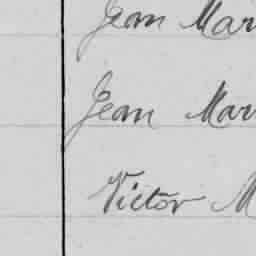 Jean Mar
Jean Mar
Victor M